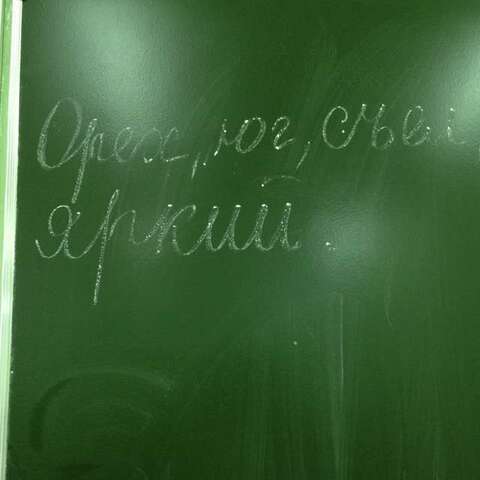 Орех, юг, съел
яркий.